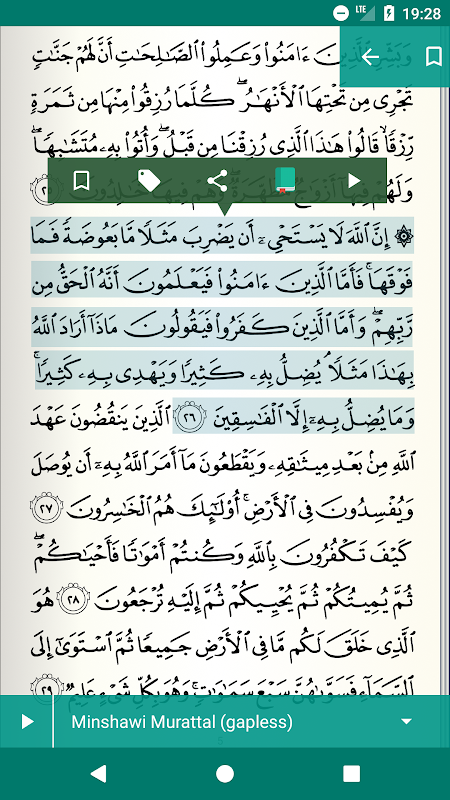 19:28
LTE
وَبَشِّرِ ٱلَّذِينَ ءَامَنُوا۟ وَعَمِلُوا۟ ٱلصَّـٰلِحَـٰتِ أَنَّ لَهُمْ جَنَّـٰتٍ
تَجْرِى مِن تَحْتِهَا ٱلْأَنْهَـٰرُ ۖ كُلَّمَا رُزِقُوا۟ مِنْهَا مِن ثَمَرَةٍ
رِّزْقًا ۙ قَالُوا۟ هَـٰذَا ٱلَّذِى رُزِقْنَا مِن قَبْلُ ۖ وَأُتُوا۟ بِهِۦ مُتَشَـٰبِهًا ۖ
وَلَهُمْ فِيهَآ أَزْوَٰجٌ مُّطَهَّرَةٌ ۖ وَهُمْ فِيهَا خَـٰلِدُونَ ٢٥
۞ إِنَّ ٱللَّهَ لَا يَسْتَحْىِۦٓ أَن يَضْرِبَ مَثَلًا مَّا بَعُوضَةً فَمَا
فَوْقَهَا ۚ فَأَمَّا ٱلَّذِينَ ءَامَنُوا۟ فَيَعْلَمُونَ أَنَّهُ ٱلْحَقُّ مِن
رَّبِّهِمْ ۖ وَأَمَّا ٱلَّذِينَ كَفَرُوا۟ فَيَقُولُونَ مَاذَآ أَرَادَ ٱللَّهُ
بِهَـٰذَا مَثَلًا ۘ يُضِلُّ بِهِۦ كَثِيرًا وَيَهْدِى بِهِۦ كَثِيرًا ۚ
وَمَا يُضِلُّ بِهِۦٓ إِلَّا ٱلْفَـٰسِقِينَ ٢٦ ٱلَّذِينَ يَنقُضُونَ عَهْدَ
ٱللَّهِ مِنۢ بَعْدِ مِيثَـٰقِهِۦ وَيَقْطَعُونَ مَآ أَمَرَ ٱللَّهُ بِهِۦٓ أَن يُوصَلَ
وَيُفْسِدُونَ فِى ٱلْأَرْضِ ۚ أُو۟لَـٰٓئِكَ هُمُ ٱلْخَـٰسِرُونَ ٢٧
كَيْفَ تَكْفُرُونَ بِٱللَّهِ وَكُنتُمْ أَمْوَٰتًا فَأَحْيَـٰكُمْ ۖ
ثُمَّ يُمِيتُكُمْ ثُمَّ يُحْيِيكُمْ ثُمَّ إِلَيْهِ تُرْجَعُونَ ٢٨ هُوَ
ٱلَّذِى خَلَقَ لَكُم مَّا فِى ٱلْأَرْضِ جَمِيعًا ثُمَّ ٱسْتَوَىٰٓ إِلَى
ٱلسَّمَآءِ فَسَوَّىٰهُنَّ سَبْعَ سَمَـٰوَٰتٍ ۚ وَهُوَ بِكُلِّ شَىْءٍ عَلِيمٌ ٢٩
Minshawi Murattal (gapless)